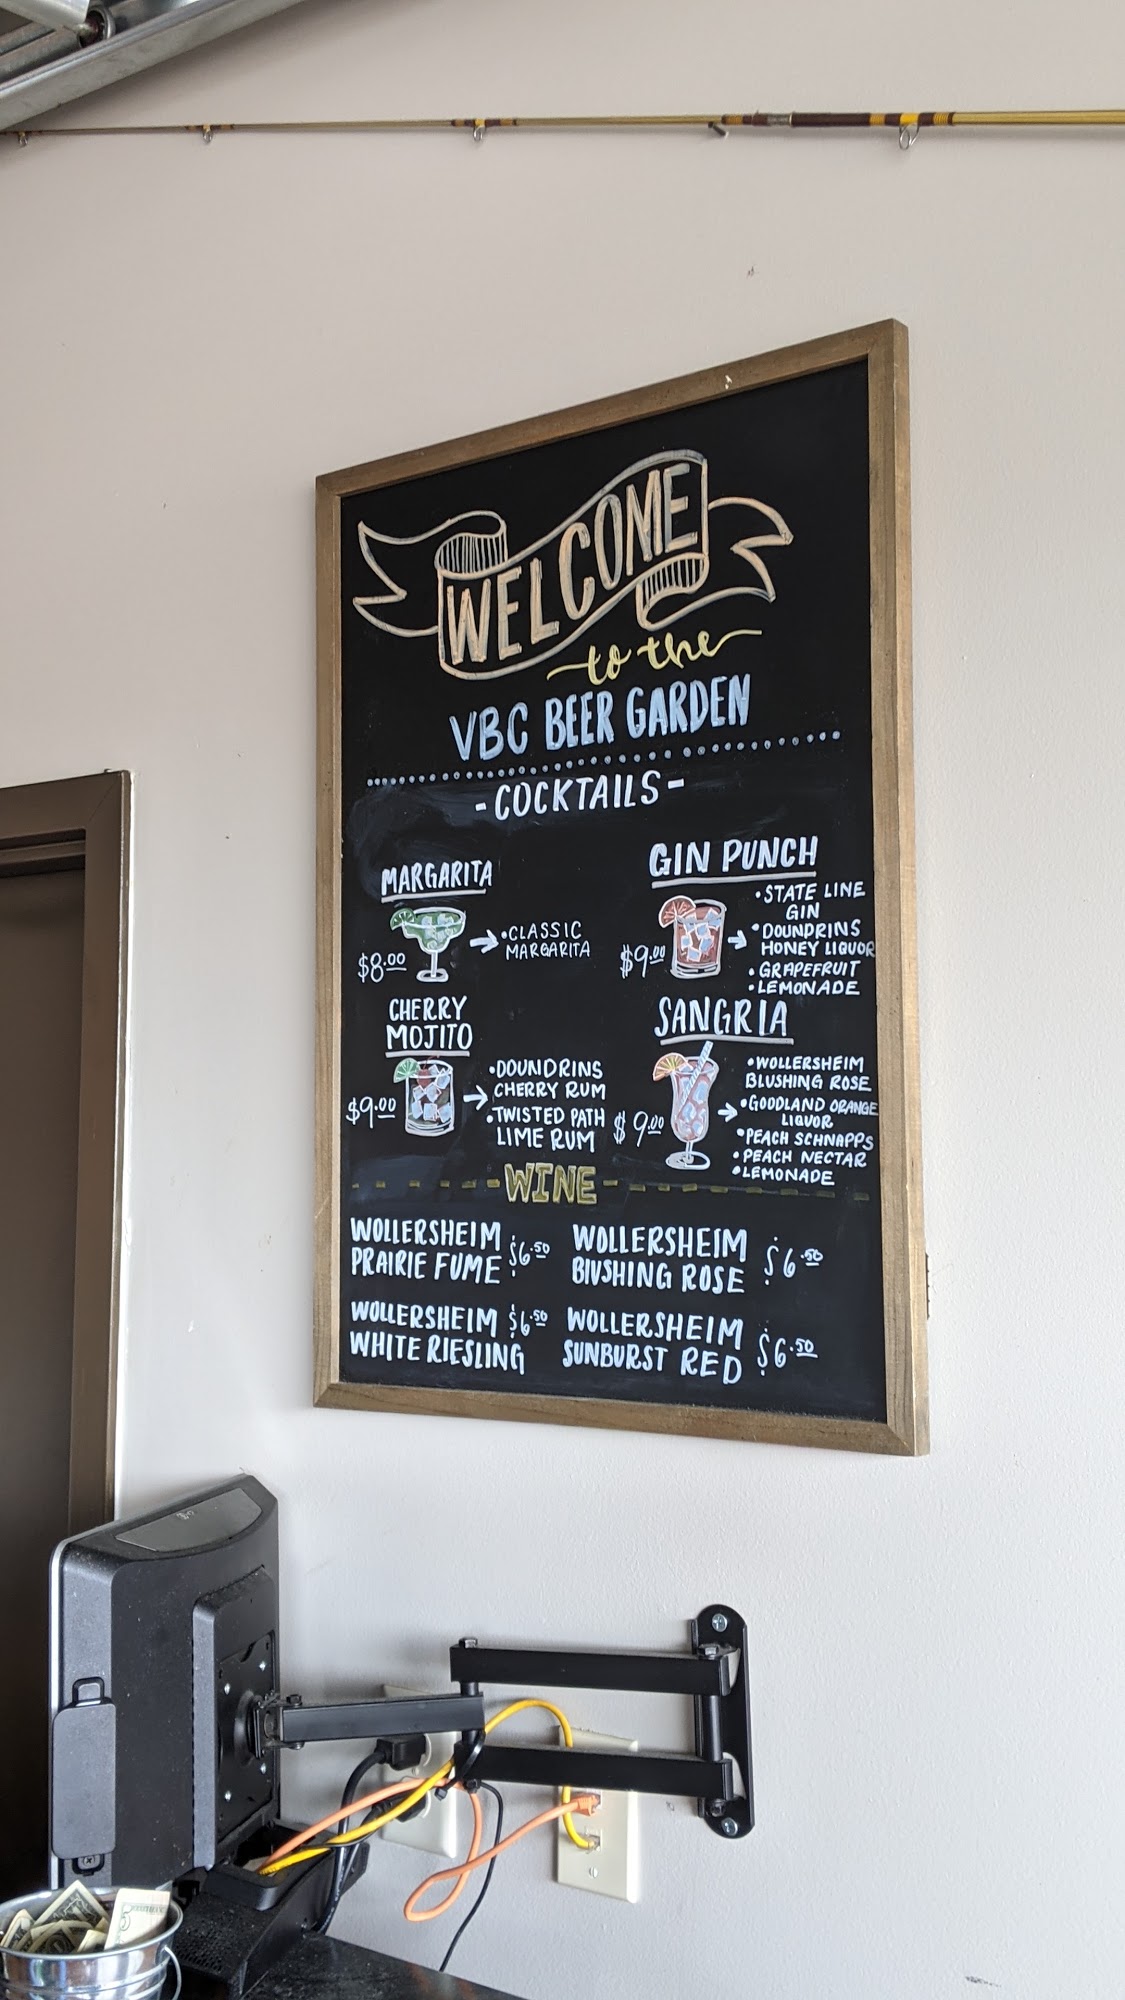 WELCOME
to the
VBC BEER GARDEN
-COCKTAILS-
MARGARITA
$8.00
•CLASSIC
MARGARITA
GIN PUNCH
$9.00
•STATE LINE
GIN
•DOUNDRINS
HONEY LIQUOR
•GRAPEFRUIT
•LEMONADE
CHERRY
MOJITO
$9.00
•DOUNDRINS
CHERRY RUM
•TWISTED PATH
LIME RUM
SANGRIA
$9.00
•WOLLERSHEIM
BLUSHING ROSE
•GOODLAND ORANGE
LIQUOR
•PEACH SCHNAPPS
•PEACH NECTAR
•LEMONADE
WINE
WOLLERSHEIM
PRAIRIE FUME $6.50
WOLLERSHEIM
BLUSHING ROSE $6.50
WOLLERSHEIM $6.50
WHITE RIESLING
WOLLERSHEIM
SUNBURST RED $6.50